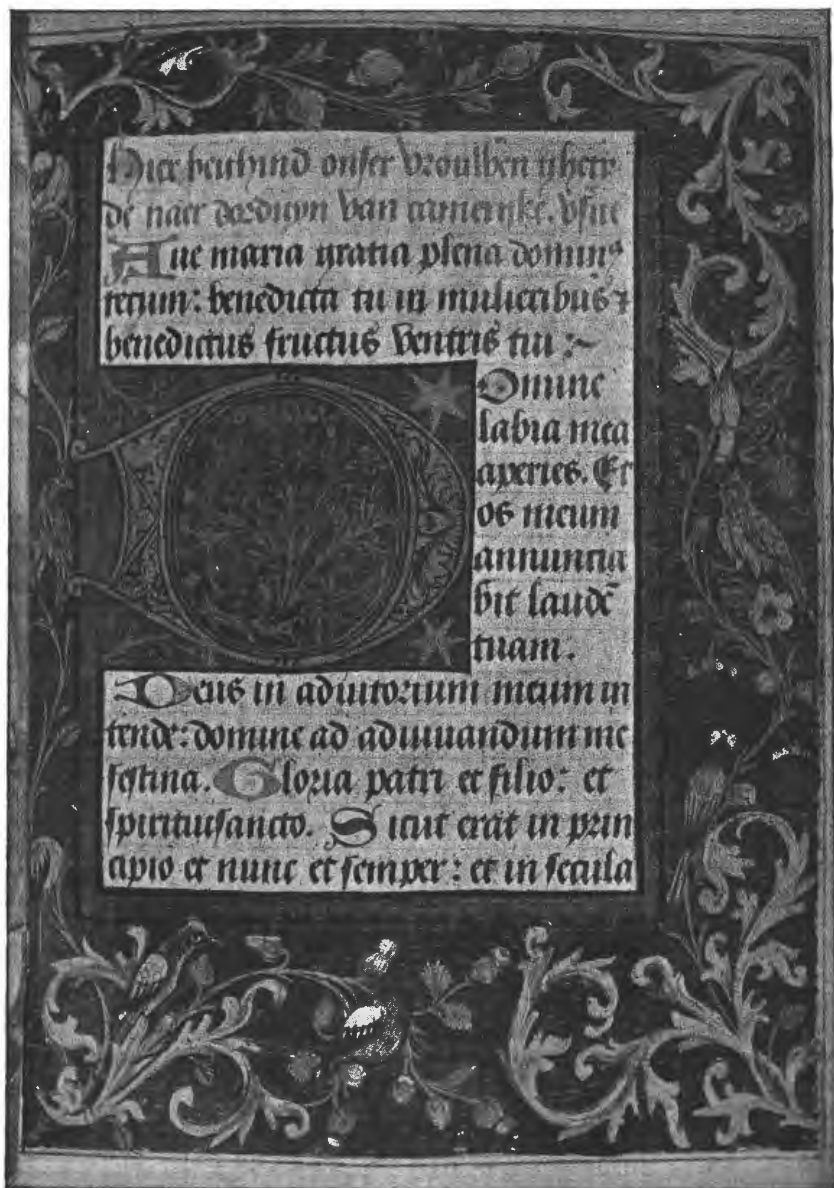 Hier beghind onser vrouwen ghetij
de naer dordijn van camerijke.
Aue maria gratia plena domin⁹
tecum: benedicta tu in mulieribus ⁊
benedictus fructus ventris tui :~
Domine
labia mea
aperies. Et
os meum
annuncia
bit laudē
tuam.
Deus in adiutorium meum in
tende: domine ad adiuuandum me
festina. Gloria patri et filio: et
spirituisancto. Sicut erat in prin
cipio et nunc et semper: et in secula